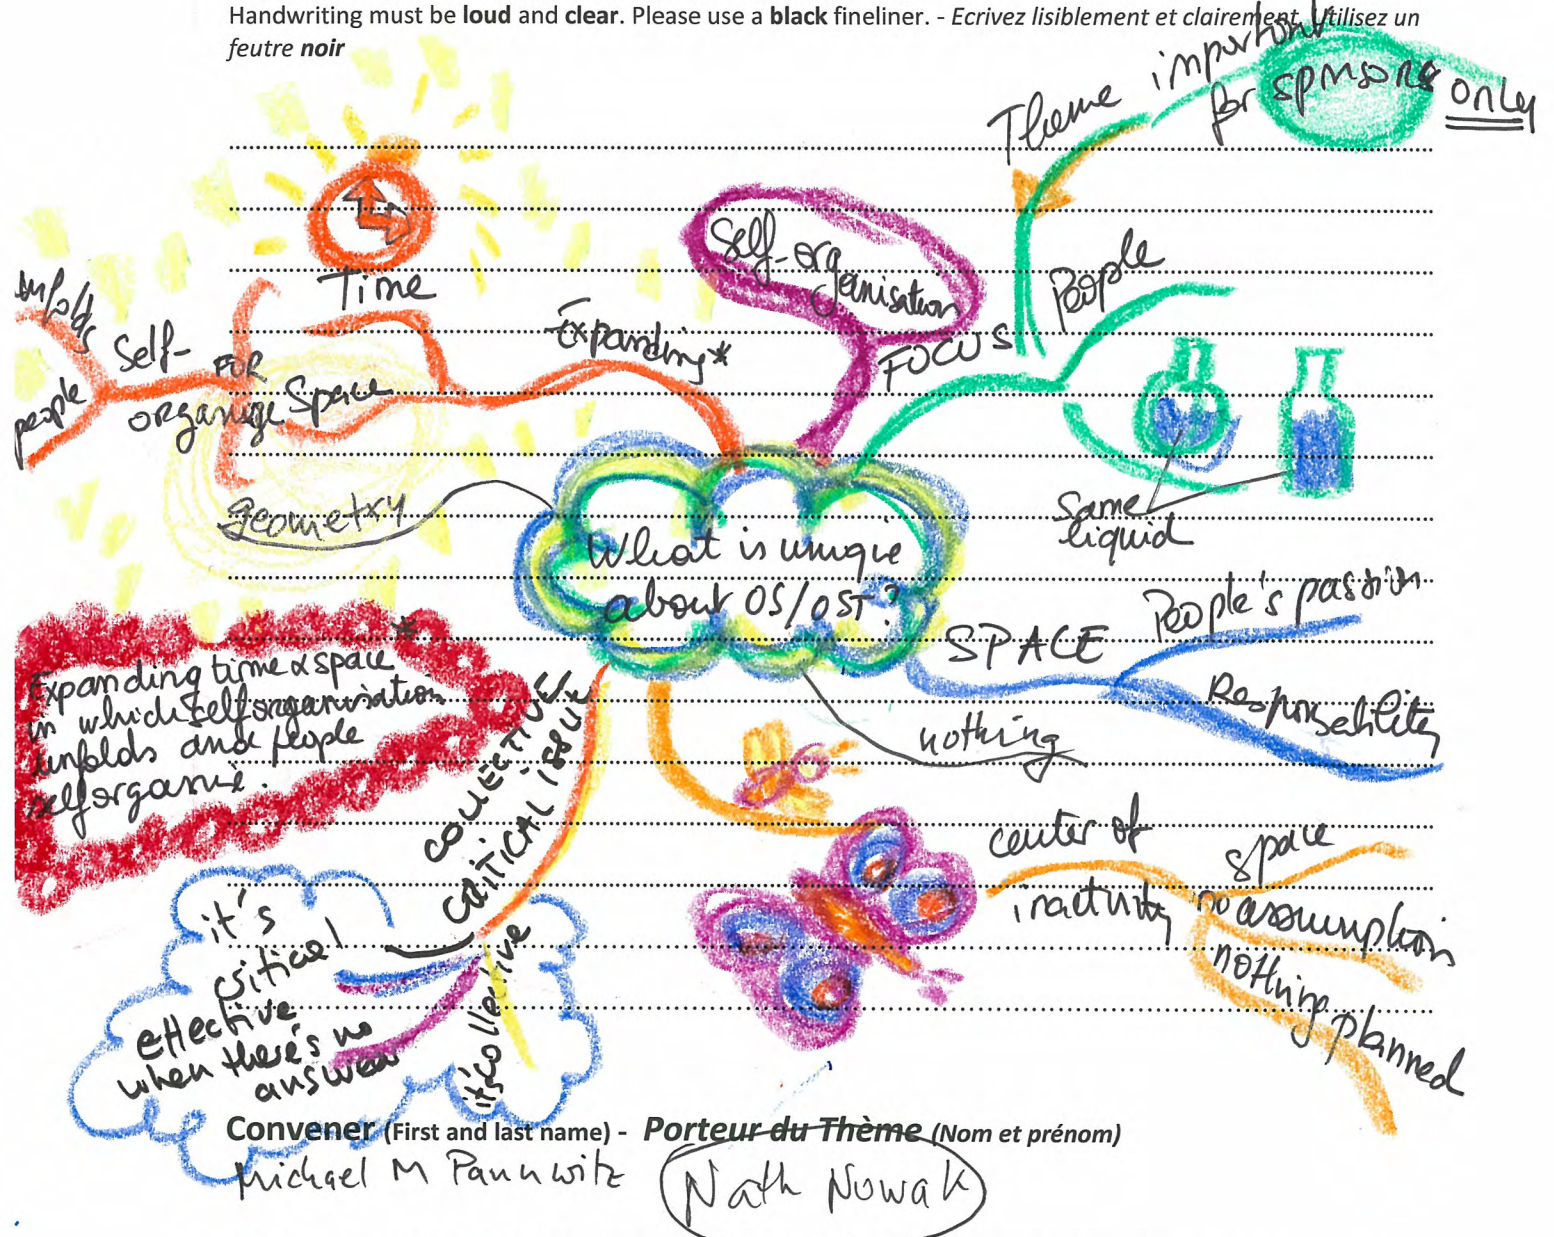 Handwriting must be loud and clear. Please use a black fineliner. - Ecrivez lisiblement et clairement. Utilisez un
feutre noir
Theme important
for sponsors only
Self-organisation
Time
Expanding*
FOCUS
People
unfolds
people
Self-
organize
FOR
Space
geometry
Same
liquid
What is unique
about OS/OST?
SPACE
People's passion
Responsability
nothing
*
Expanding time & space
in which selforganisation
unfolds and people
selforganise.
COLLECTIVE
CRITICAL ISSUE
center of
inactivity
space
no assumption
nothing planned
it's
critical
effective
when there's no
answer
it's collective
Convener (First and last name) - Porteur du Thème (Nom et prénom)
Michael M Pannwitz
Nath Nowak